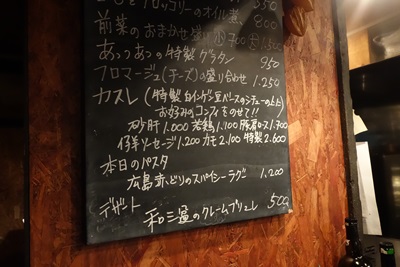 ブロッコリーのオイル煮、 800
前菜のおまかせ盛り 小700
あっつあつの特製グラタン 950
フロマージュ(チーズ)の盛り合わせ 1.250
カスレ(特製 白インゲン豆ベースのシチューの上に
お好みのコンフィをのせて!!)
砂肝 1.000 若鶏 1.100 豚肩ロース 1.700
仔羊ソーセージ 1.200 カモ 2.100 特製 2.600
本日のパスタ
広島赤どりのスパイシーラグー 1,200
デザート
和三盆のクレームブリュレ 500